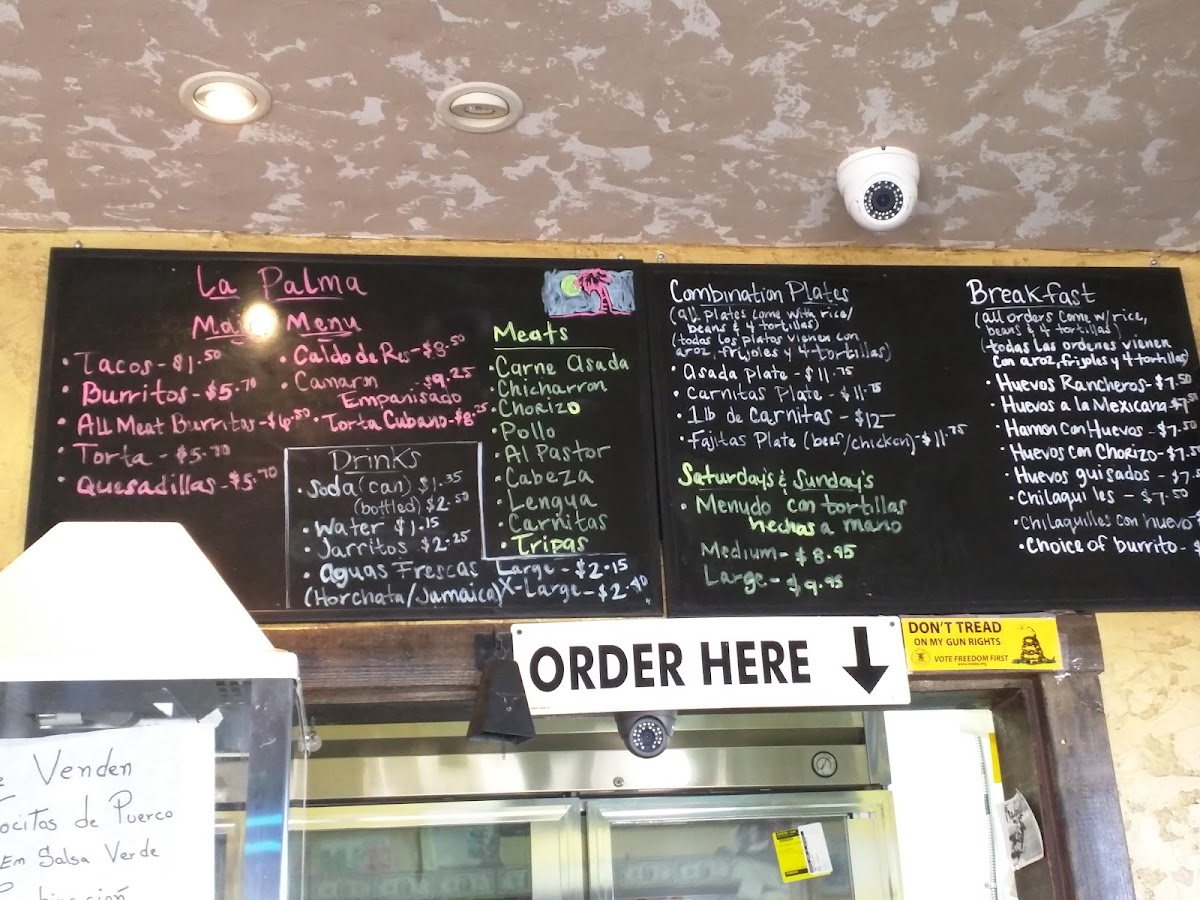 La Palma
Main Menu
• Tacos - $1.50
• Burritos - $5.70
• All Meat Burritos - $6.50
• Torta - $5.70
• Quesadillas - $5.70
• Caldo de Res - $8.50
• Camaron - $9.25
Empanisado
• Torta Cubano - $8.25
Drinks
• Soda (can) $1.35
(bottled) $2.50
• Water $1.15
• Jarritos $2.25
• Aguas Frescas Large - $2.15
(Horchata/Jamaica) X-Large - $2.40
Meats
• Carne Asada
• Chicharron
• Chorizo
• Pollo
• Al Pastor
• Cabeza
• Lengua
• Carnitas
• Tripas
Combination Plates
(all plates come with rice/
beans & 4 tortillas)
(todas los platos vienen con
aroz, frijoles y 4 tortillas)
• Asada Plate - $11.75
• Carnitas Plate - $11.75
• 1lb de Carnitas - $12
• Fajitas Plate (beef/chicken) - $11.75
Saturday's & Sunday's
• Menudo con tortillas
hechas a mano
Medium - $8.95
Large - $9.95
Breakfast
(all orders come w/ rice,
beans & 4 tortillas)
(todas las ordenes vienen
con aroz, frijoles y 4 tortillas)
• Huevos Rancheros - $7.50
• Huevos a la Mexicana - $7.50
• Hamon con Huevos - $7.50
• Huevos con Chorizo - $7.50
• Huevos guisados - $7.
• Chilaquiles - $7.50
• Chilaquilles con huevo
• Choice of burrito - $
ORDER HERE
DON'T TREAD
ON MY GUN RIGHTS
VOTE FREEDOM FIRST
Venden
de Puerco
Em Salsa Verde